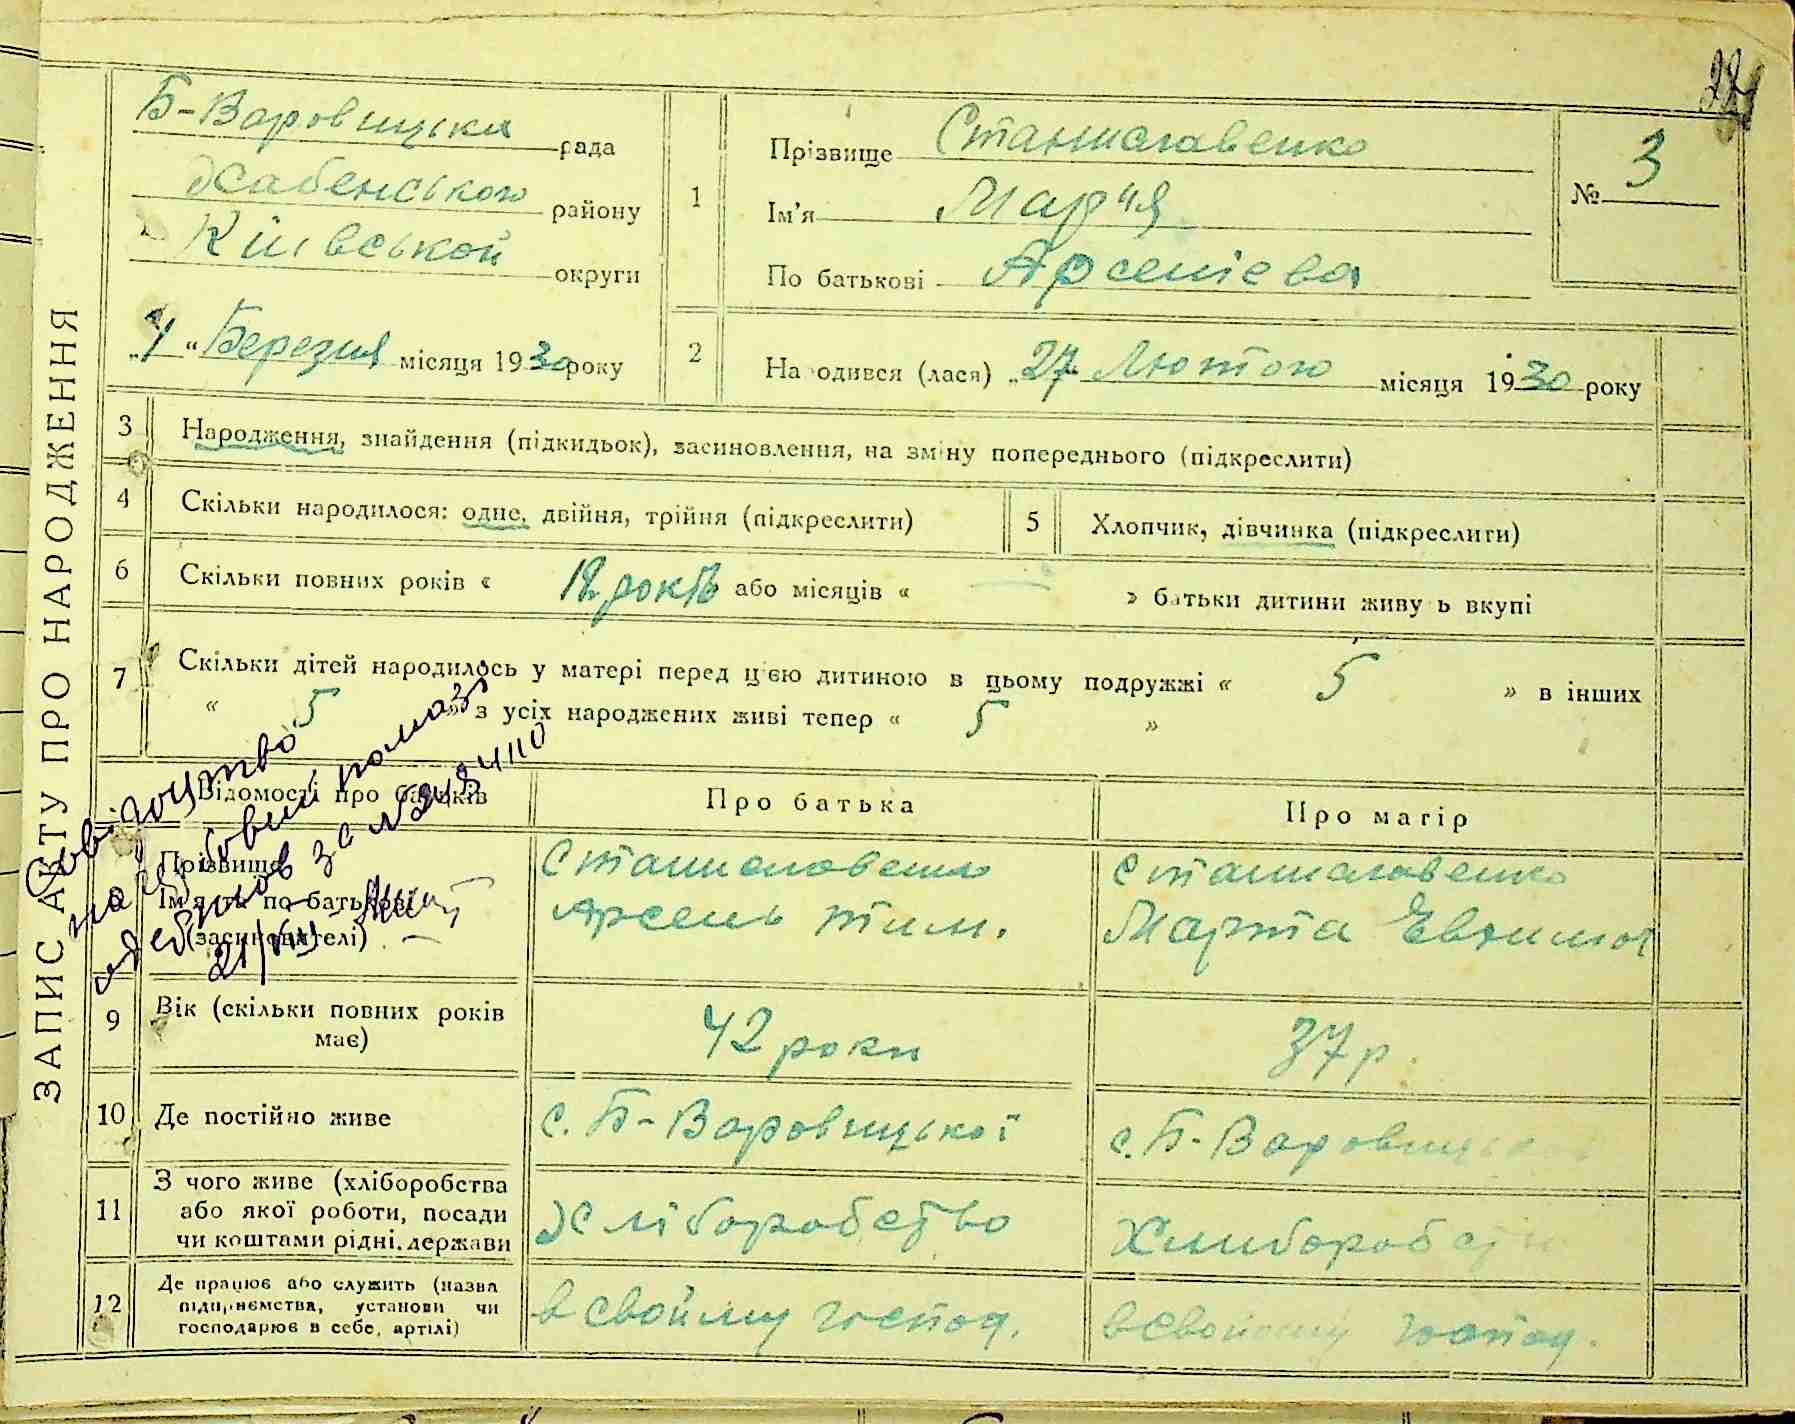 ЗАПИС АКТУ ПРО НАРОДЖЕННЯ
Б-Варовицька рада
Хабенського району
Київськой округи
„4“ Березня місяця 1930 року
1
Прізвище Станиславенко
Ім'я Мария
По батькові Арсеніева
№ 3
2
Народився (лася) „27 Лютого місяця 1930 року
3 Народження, знайдення (підкидьок), засиновлення, на зміну попереднього (підкреслити)
4 Скільки народилося: одне, двійня, трійня (підкреслити)
5 Хлопчик, дівчинка (підкреслити)
6 Скільки повних років « 18 років або місяців « — » батьки дитини живуть вкупі
7 Скільки дітей народилось у матері перед цією дитиною в цьому подружжі « 5 » в інших
« 5 » з усіх народжених живі тепер « 5 »
Відомості про батьків
Про батька
Про матір
Прізвище
Ім'я та по батькові
(засиновителі)
Станиславенко
Арсень Тим.
Станиславенко
Марта Евтимов
Свідоцтво
21/VII
9 Вік (скільки повних років має)
42 роки
37 р.
10 Де постійно живе
с. Б-Варовицької
с. Б-Варовицької
11 З чого живе (хліборобства
або якої роботи, посади
чи коштами рідні, держави
Хліборобство
Хлиборобство
12 Де працює або служить (назва
підприємства, установи чи
господарює в себе, артілі)
в свойму господ.
в свойому господ.